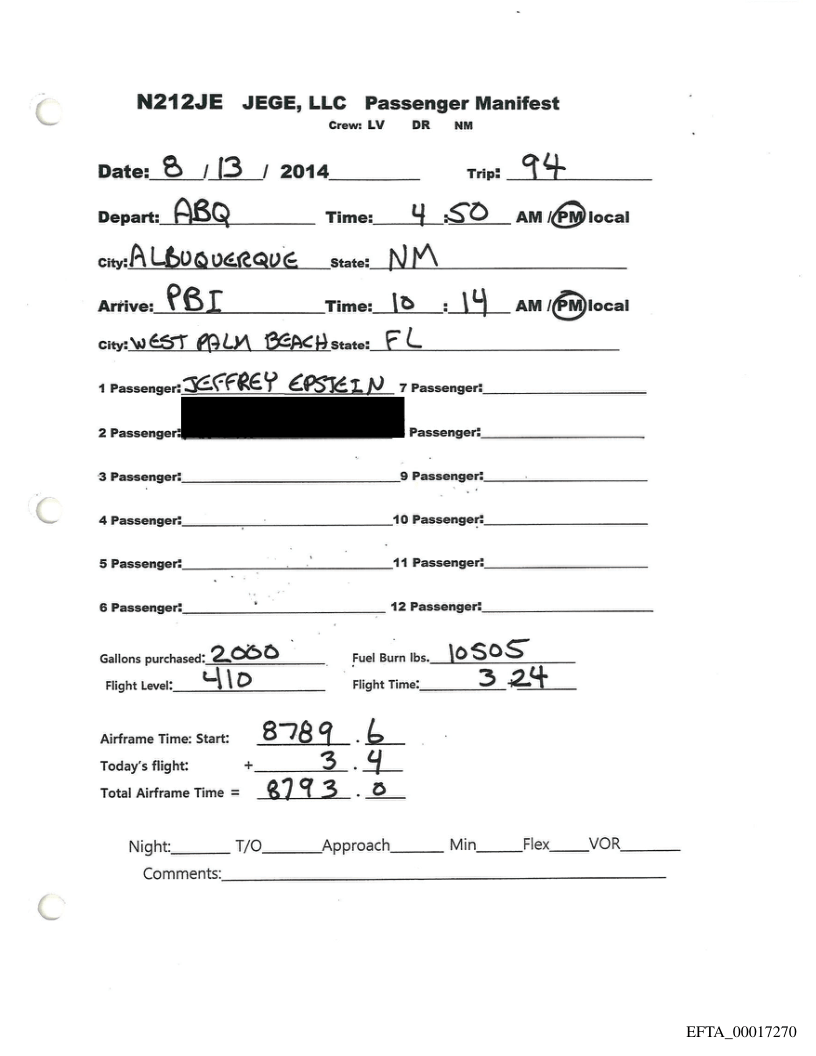 N212JE JEGE, LLC Passenger Manifest
Crew: LV DR NM
Date: 8 / 13 / 2014 Trip: 94
Depart: ABQ Time: 4 : 50 AM / PM local
City: ALBUQUERQUE State: NM
Arrive: PBI Time: 10 : 14 AM / PM local
City: WEST PALM BEACH State: FL
1 Passenger: JEFFREY EPSTEIN 7 Passenger:
2 Passenger: Passenger:
3 Passenger: 9 Passenger:
4 Passenger: 10 Passenger:
5 Passenger: 11 Passenger:
6 Passenger: 12 Passenger:
Gallons purchased: 2000 Fuel Burn lbs. 10505
Flight Level: 410 Flight Time: 3 + 24
Airframe Time: Start: 8789 . 6
Today's flight: + 3 . 4
Total Airframe Time = 8793 . 0
Night: T/O Approach Min Flex VOR
Comments:
EFTA_00017270